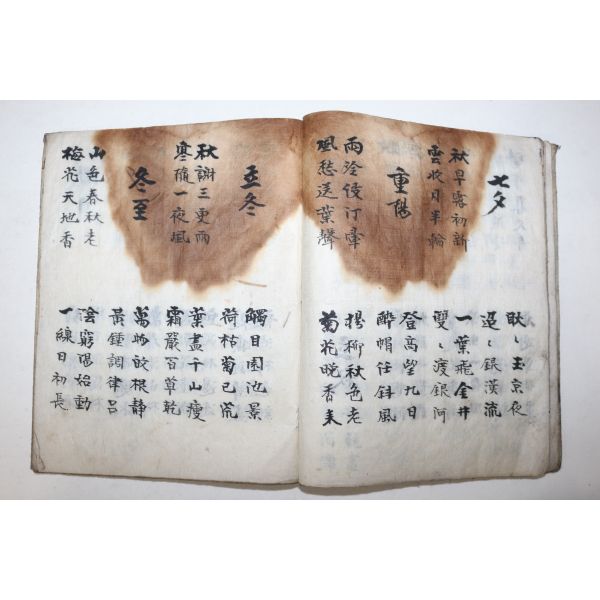 七夕
耿〻玉京夜
迢〻銀漢流
秋早露初新
雲收月半輪
一葉飛金井
雙〻渡銀河
重陽
登高望九日
醉帽任斜風
雨冷侵汀
風愁送葉聲
楊柳秋色老
菊花晩香来
立冬
觸目園池景
荷枯菊已荒
秋謝三更雨
寒隨一夜風
葉盡千山瘦
霜嚴百草乾
冬至
萬物皈根静
黃鍾調律呂
山色春秋老
梅花天地香
陰窮陽始動
一線日初長